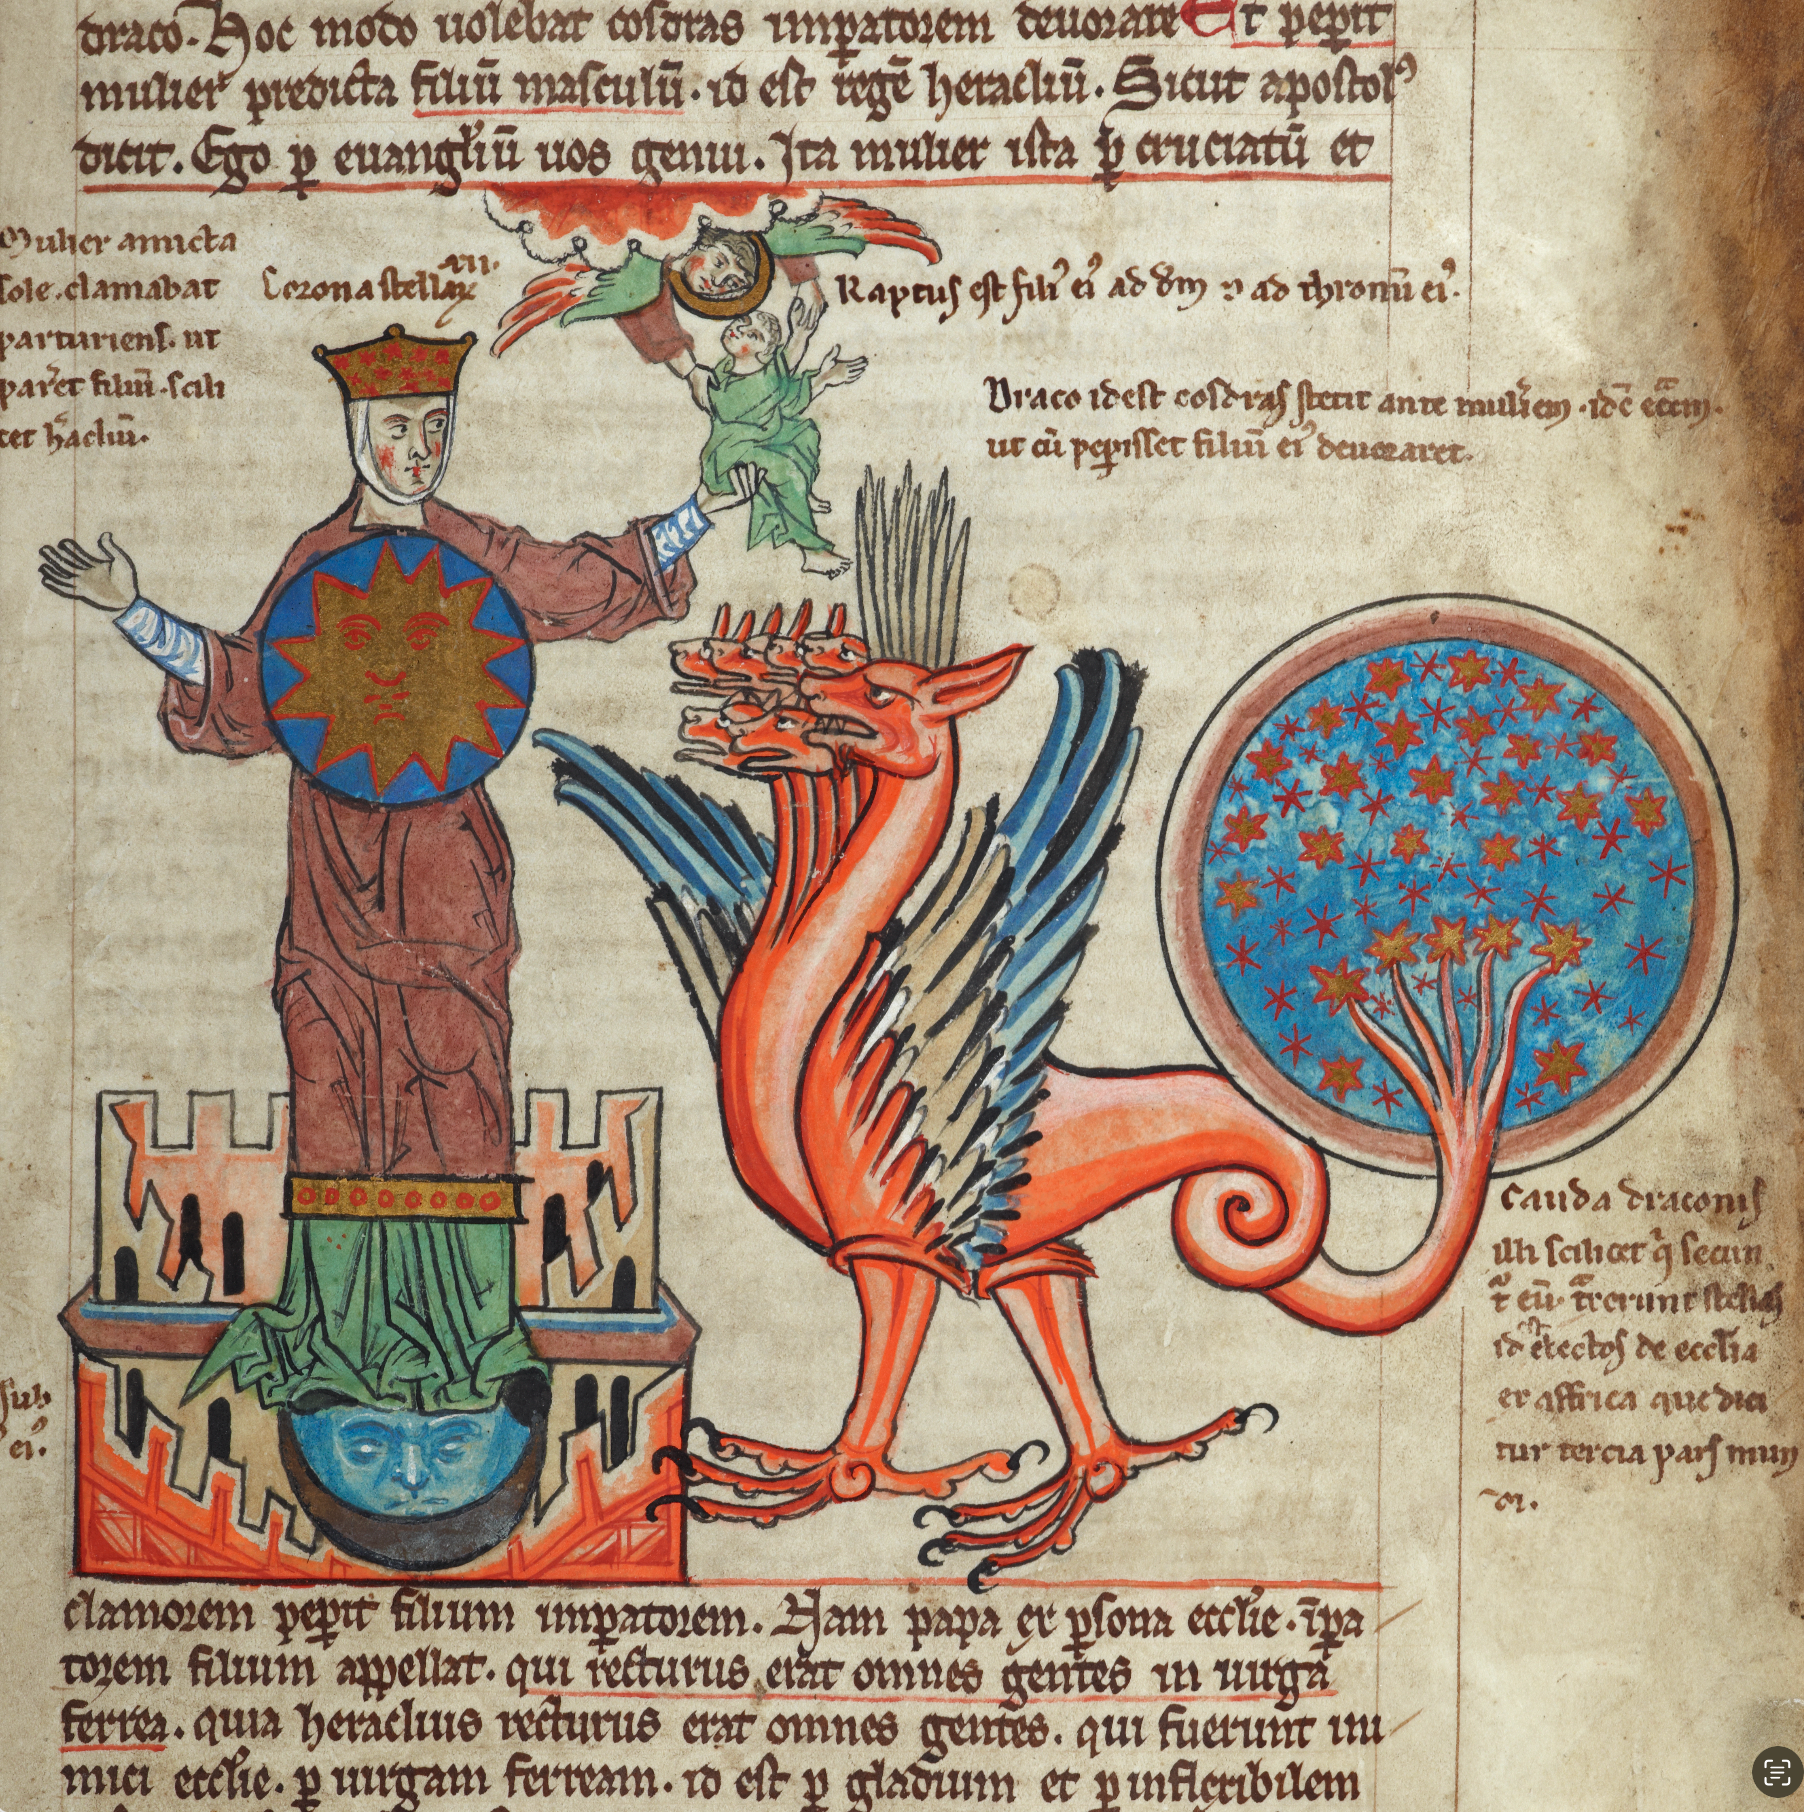 draco. Hoc modo uolebat cosdras imꝑatorem deuorare Et peꝑit
mulier predicta filiū masculū. id est regē heracliū. Sicut apostolꝰ
dicit. Ego ꝑ euangl̓iū uos genui. Ita mulier ista ꝑ cruciatū et
Mulier amicta
sole. clamabat
parturiens. ut
par̓et filiū. scili
cet h̓acliū.
Corona stellaꝝ xii.
Raptus est filiꝰ eiꝰ ad dm̄ ⁊ ad thronū eiꝰ.
Draco id est cosdras stetit ante mulierem. id ē ecc̄am.
ut cū peꝑisset filiū eiꝰ deuoraret.
Cauda draconis
illi scilicet q̇ secun
t͛ eū. t͛xerunt stellas
id ē electos de eccl̄ia
ex affrica que dici
tur tercia pars mun
di.
sub
eiꝰ.
clamorem peꝑit filium imꝑatorem. Nam papa ex ꝑsona eccl̓ie. īꝑa
torem filium appellat. qui recturus erat omnes gentes in uirga
ferrea. quia heraclius recturus erat omnes gentes. qui fuerunt ini
mici eccl̓ie. ꝑ uirgam ferream. id est ꝑ gladium et ꝑ inflexibilem